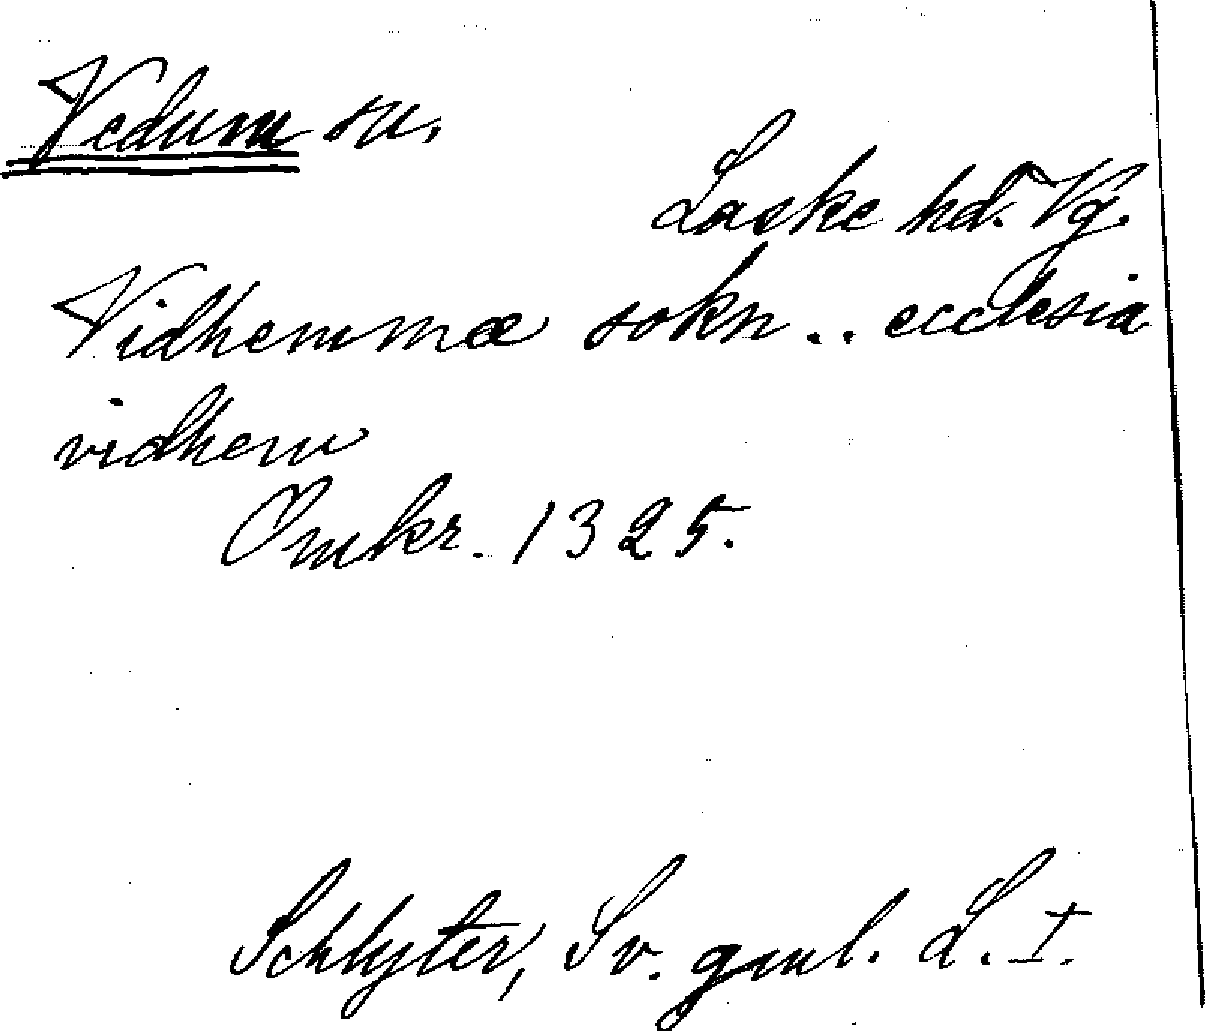 Vedum sn.
Laske hd. Vg.
Vidhemmæ sokn .. ecclesia
vidhem
Omkr. 1325.
Schlyter, Sv. gml. L. I.